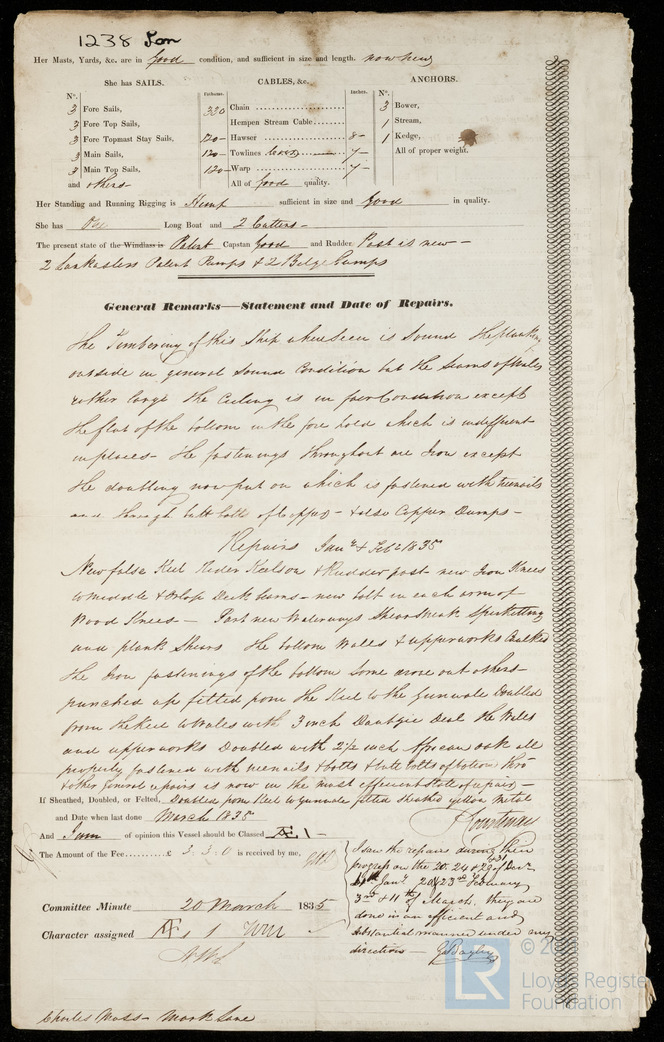 1238 Ton
Her Masts, Yards, &c. are in good condition, and sufficient in size and length. now new
She has SAILS. CABLES, &c. ANCHORS.
Nº. Fathoms. Inches. Nº.
3 Fore Sails, 330 Chain 3 Bower,
3 Fore Top Sails, Hempen Stream Cable 1 Stream,
3 Fore Topmast Stay Sails, 120 Hawser 8 1 Kedge,
3 Main Sails, 120 Towlines 7 All of proper weight.
3 Main Top Sails, 120 Warp 7
and others All of good quality.
Her Standing and Running Rigging is Hemp sufficient in size and Good in quality.
She has One Long Boat and 2 Cutters
The present state of the Windlass is Patent Capstan Good and Rudder Post is new
2 Lankasters Patent Pumps & 2 Bilge Pumps
General Remarks—Statement and Date of Repairs.
The Timbering of this Ship where seen is Sound the planking
outside in general Sound Condition but the seams of Wales
rather large the Ceiling is in fair Condition except
the flat of the bottom in the fore hold which is indifferent
in places - the fastenings throughout are Iron except
the doubling now put on which is fastened with treenails
and through butt bolts of Copper - & also Copper Dumps -
Repairs Jany & Feb 1835
New false Keel Rider Keelson & Rudder post - new Iron Knees
to middle & Orlop Deck beams - new bolt in each arm of
Wood Knees - Part new Waterways Shearstreak Spirketting
and plank Shears the bottom Wales & upperworks Caulked
the Iron fastenings of the bottom some drove out others
punched up fitted from the Keel to the Gunwale Doubled
from the Keel to Wales with 3 inch Dantzic Deal the Wales
and upperworks Doubled with 2½ inch African oak all
properly fastened with treenails & bolts & butt bolts of bottom thro
& other general repairs is now in the most efficient state of repair -
If Sheathed, Doubled, or Felted, Doubled from Keel to Gunwale felted sheathed yellow Metal
and Date when last done March 1835
And I am of opinion this Vessel should be Classed Æ 1
The Amount of the Fee £ 3 . 3 . 0 is received by me,
I saw the repairs during their
progress on the 20. 24 & 29 of Decr &31
Jany 20 & 23rd February
3rd & 11th of March, they are
done in an efficient and
substantial manner under my
direction - G Bayley
Committee Minute 20 March 1835
Character assigned Æ 1
© 20
LR
Lloyd's Register
Foundation
Charles Moss - Mark Lane